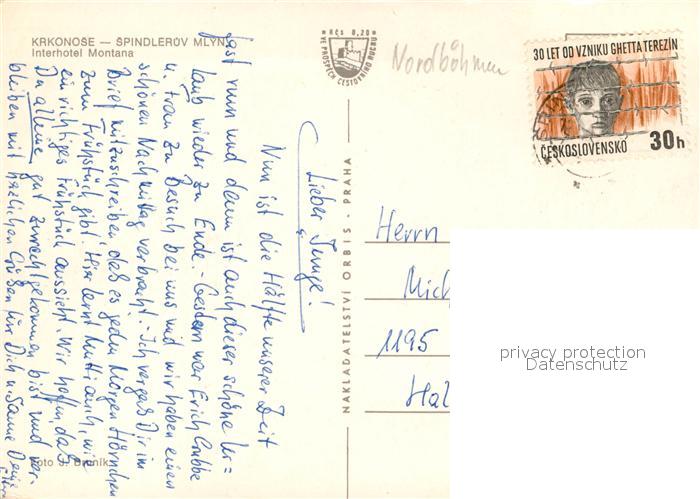 KRKONOŠE — ŠPINDLERŮV MLÝN
Interhotel Montana
Kčs 0,20
VE PROSPĚCH CESTOVNÍHO RUCHU
Nordböhmen
30 LET OD VZNIKU GHETTA TEREZÍN
ČESKOSLOVENSKO 30h
Lieber Junge!
Nun ist die Hälfte unserer Zeit
fast rum und dann ist auch dieser schöne Ur=
laub wieder zu Ende. - Gestern war Erich Grubbe
u. Frau zu Besuch bei uns und wir haben einen
schönen Nachmittag verbracht. - Ich vergaß Dir im
Brief mitzuschreiben daß es jeden Morgen Hörnchen
zum Frühstück gibt. Hier lernt Mutti auch, wie
ein richtiges Frühstück aussieht. Wir hoffen, daß
Du alleine gut zurechtgekommen bist und ver-
bleiben mit herzlichen Grüßen für Dich u. Deine
NAKLADATELSTVÍ ORBIS - PRAHA
Herrn
Mich
1195
Hal
privacy protection
Datenschutz
Foto J.